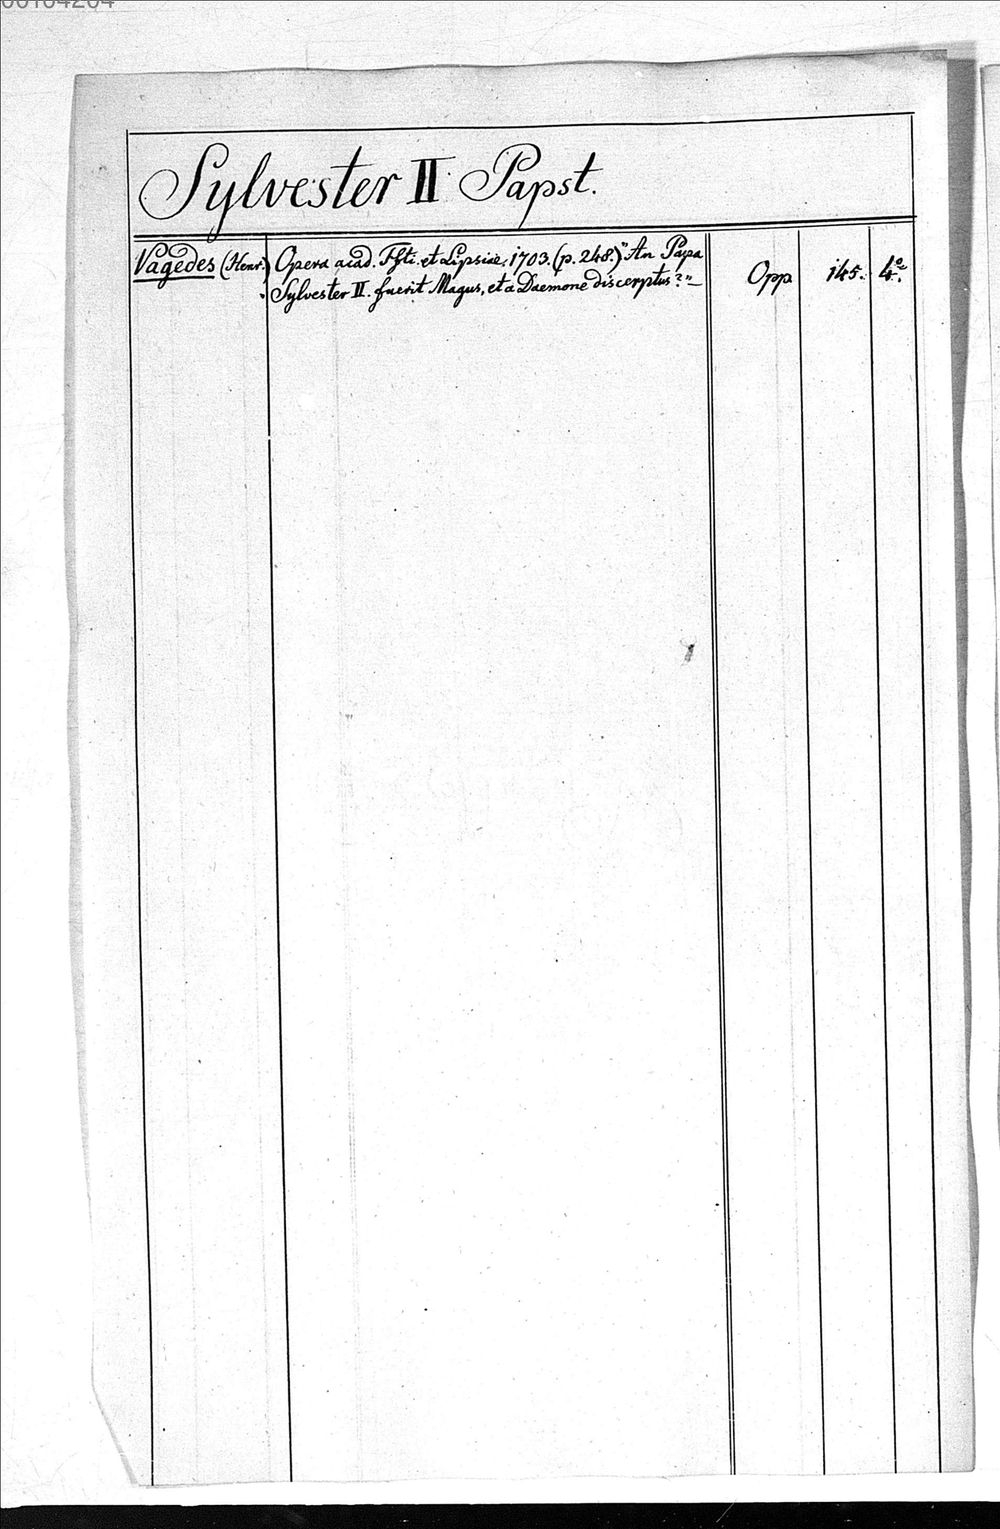 Sylvester II. Papst.
Vagedes (Henr.) Opera acad. Ffti. et Lipsiae, 1703. (p. 248.) "An Papa Opp. 145. 4º.
Sylvester II. fuerit Magus, et a Daemone discerptus?"—